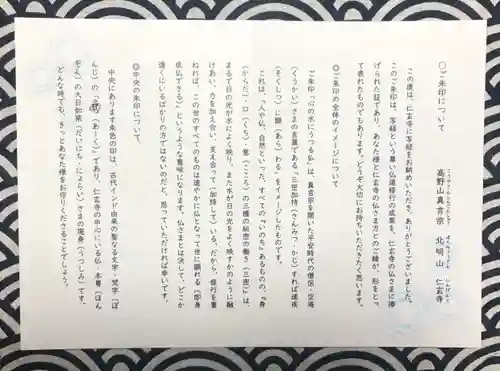 ○ご朱印について
高野山真言宗　北明山　仁玄寺
この度は、仁玄寺に写経をお納めいただき、ありがとうございました。
このご朱印は、写経という尊い仏道修行の成果を、仁玄寺の仏さまに捧
げられた証であり、あなた様と仁玄寺の仏さま方とのご縁が、形をとっ
て表れたものでもあります。どうぞ大切にお持ちいただきたく思います。
◎ご朱印の全体のイメージについて
ご朱印「心の水にうつる仏」は、真言宗を開いた平安時代の僧侶・空海
（くうかい）さまの言葉である「三密加持（さんみつ・かじ）すれば速疾
（そくしつ）に顕（あら）わる」をイメージしたものです。
これは、「人や仏、自然といった、すべての『いのち』あるものの、『身
（からだ）、口（くち）、意（こころ）の三種の秘密の働き（三密）』は、
まるで日の光が水によく映り、また水が日の光をよく映すかのように融
けあい、力を加え合い、支え合って（加持して）いる。だから、修行を重
ねれば、この世のすべてのものは速やかに仏となって世に顕れる（即身
成仏できる）」というような意味になります。仏さまとは決して、どこか
遠くにいるばかりの方ではないのだと、思っていただければ幸いです。
◎中央の朱印について
中央にあります朱色の印は、古代インド由来の聖なる文字・梵字（ぼ
んじ）の「（あーく）」であり、仁玄寺の中心にいる仏、本尊（ほん
ぞん）の大日如来（だいにち・にょらい）さまの現身（うつしみ）です。
どんな時でも、きっとあなた様をお守りくださることでしょう。